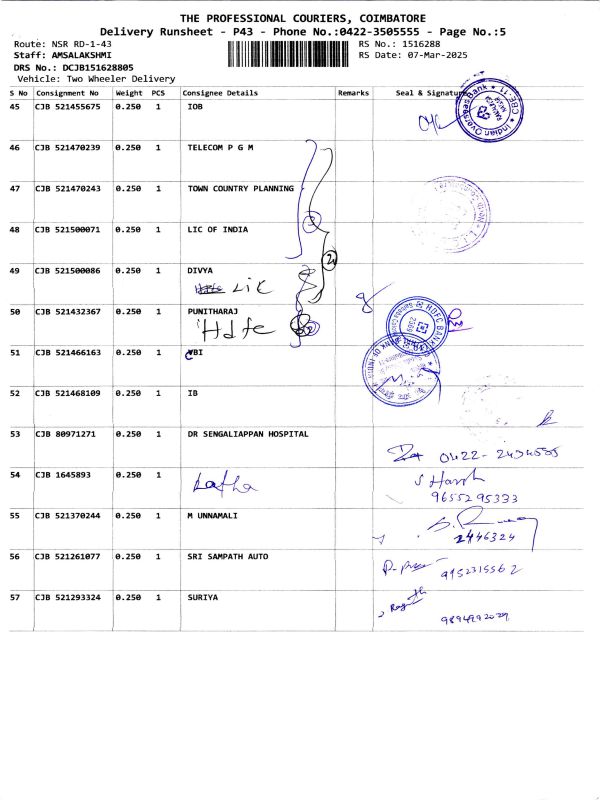 THE PROFESSIONAL COURIERS, COIMBATORE
Delivery Runsheet - P43 - Phone No.:0422-3505555 - Page No.:5
Route: NSR RD-1-43 RS No.: 1516288
Staff: AMSALAKSHMI RS Date: 07-Mar-2025
DRS No.: DCJB151628805
Vehicle: Two Wheeler Delivery
S No Consignment No Weight PCS Consignee Details Remarks Seal & Signature
45 CJB 521455675 0.250 1 IOB
Indian Overseas Bank CBE-11
46 CJB 521470239 0.250 1 TELECOM P G M
47 CJB 521470243 0.250 1 TOWN COUNTRY PLANNING
48 CJB 521500071 0.250 1 LIC OF INDIA
49 CJB 521500086 0.250 1 DIVYA
LIC
50 CJB 521432367 0.250 1 PUNITHARAJ
Hdfc
HDFC BANK
51 CJB 521466163 0.250 1 VBI
BANK OF INDIA
52 CJB 521468109 0.250 1 IB
53 CJB 80971271 0.250 1 DR SENGALIAPPAN HOSPITAL
54 CJB 1645893 0.250 1 Latha
9655295333
55 CJB 521370244 0.250 1 M UNNAMALI
2446324
56 CJB 521261077 0.250 1 SRI SAMPATH AUTO
9152315562
57 CJB 521293324 0.250 1 SURIYA